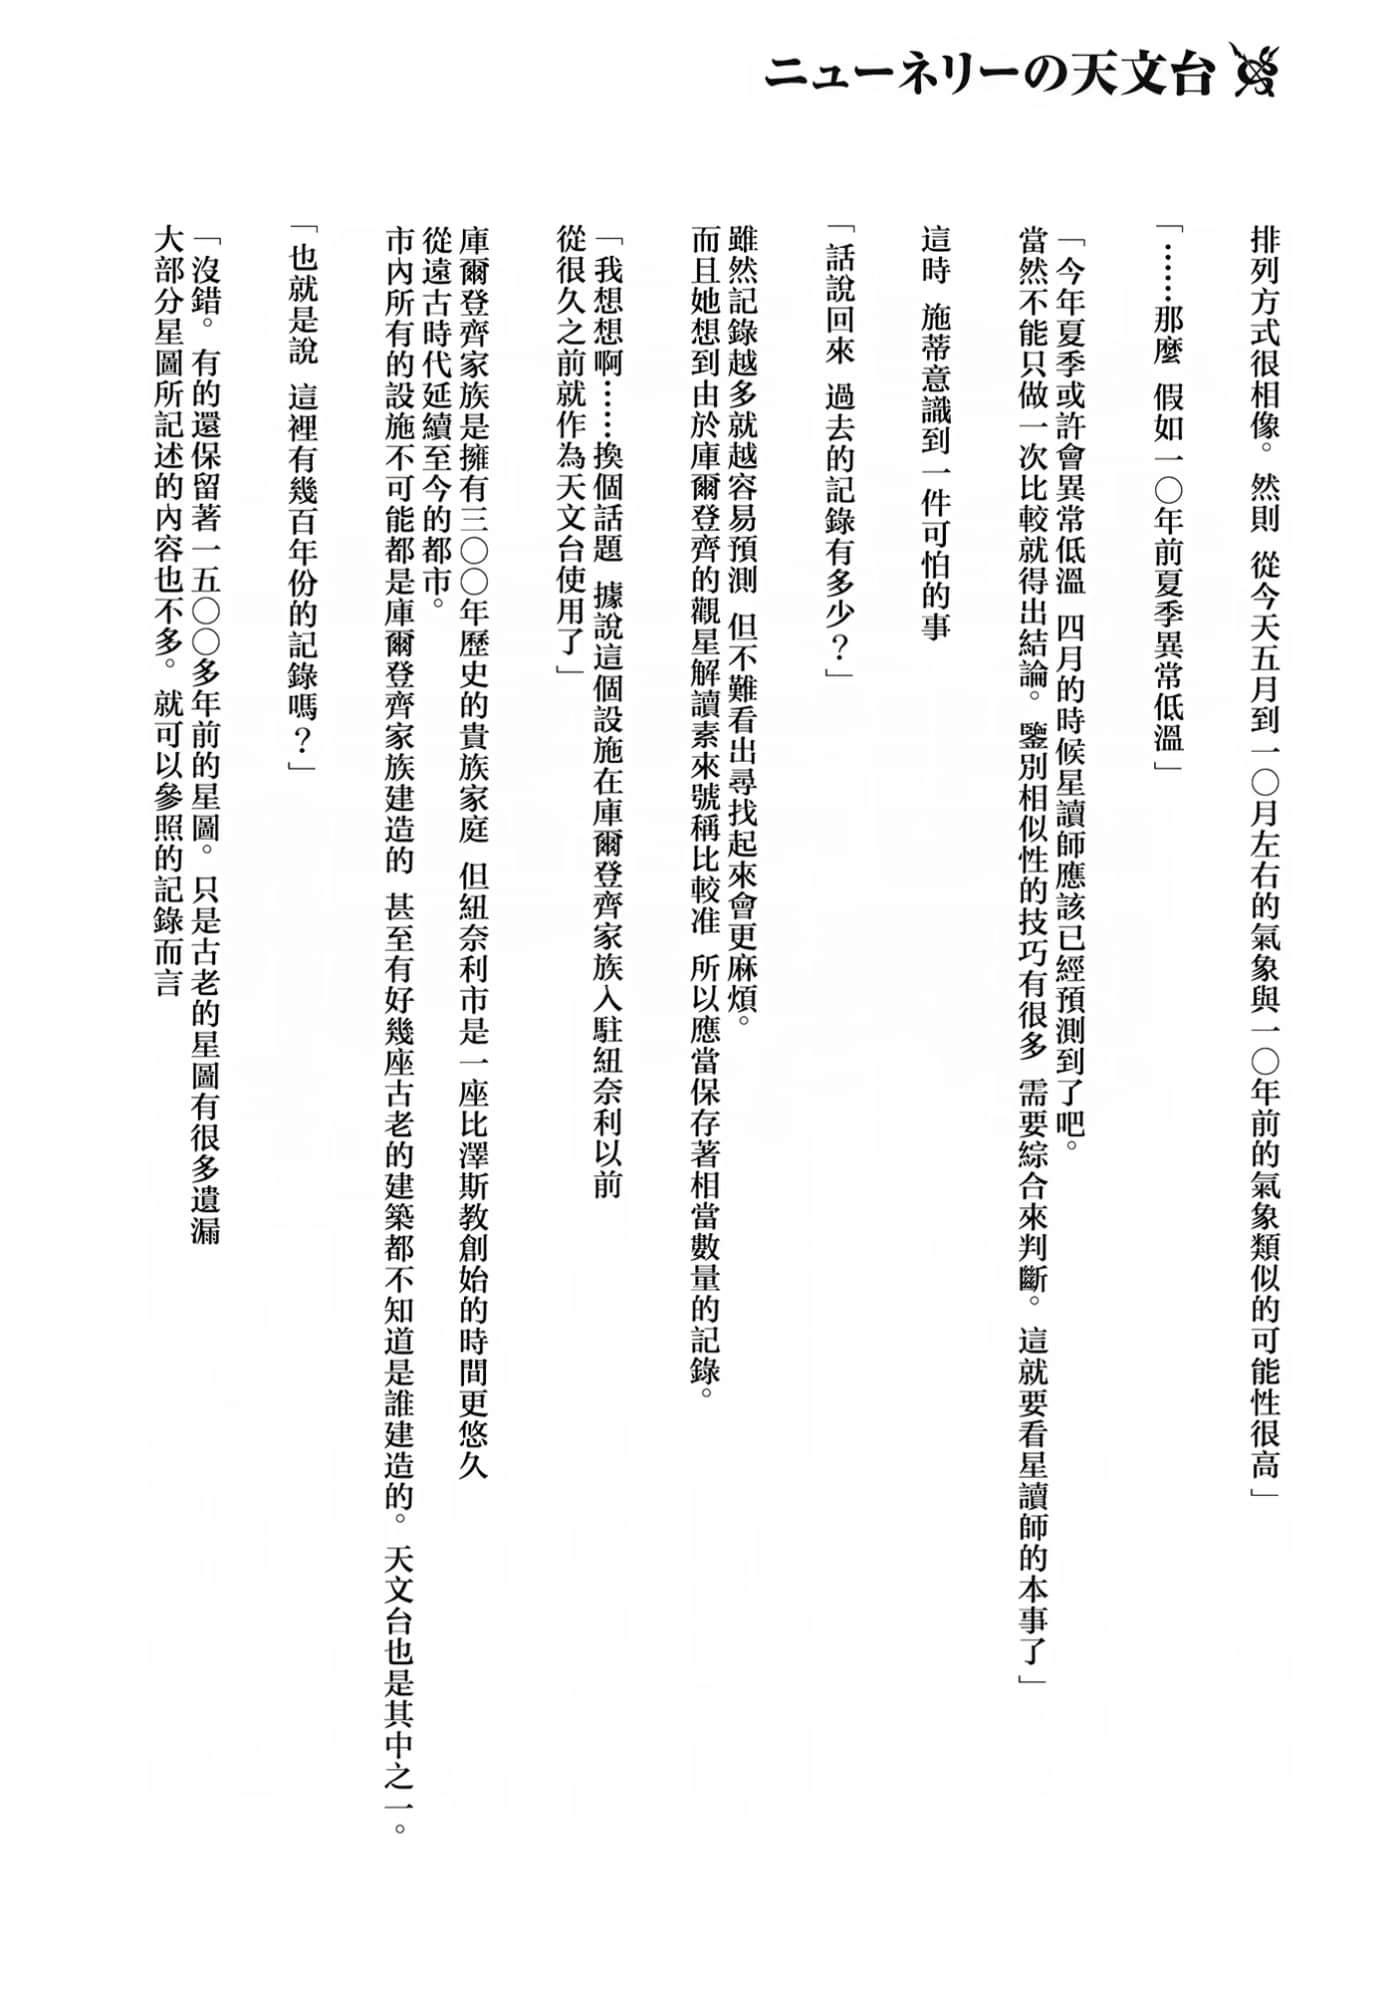 ニューネリーの天文台
排列方式很相像。然則 從今天五月到一〇月左右的氣象與一〇年前的氣象類似的可能性很高」
「……那麼 假如一〇年前夏季異常低溫」
「今年夏季或許會異常低溫 四月的時候星讀師應該已經預測到了吧。
當然不能只做一次比較就得出結論。鑒別相似性的技巧有很多 需要綜合來判斷。這就要看星讀師的本事了」
這時 施蒂意識到一件可怕的事
「話說回來 過去的記錄有多少？」
雖然記錄越多就越容易預測 但不難看出尋找起來會更麻煩。
而且她想到由於庫爾登齊的觀星解讀素來號稱比較准 所以應當保存著相當數量的記錄。
「我想想啊……換個話題 據說這個設施在庫爾登齊家族入駐紐奈利以前
從很久之前就作為天文台使用了」
庫爾登齊家族是擁有三〇〇年歷史的貴族家庭 但紐奈利市是一座比澤斯教創始的時間更悠久
從遠古時代延續至今的都市。
市內所有的設施不可能都是庫爾登齊家族建造的 甚至有好幾座古老的建築都不知道是誰建造的。天文台也是其中之一。
「也就是說 這裡有幾百年份的記錄嗎？」
「沒錯。有的還保留著一五〇〇多年前的星圖。只是古老的星圖有很多遺漏
大部分星圖所記述的內容也不多。就可以參照的記錄而言